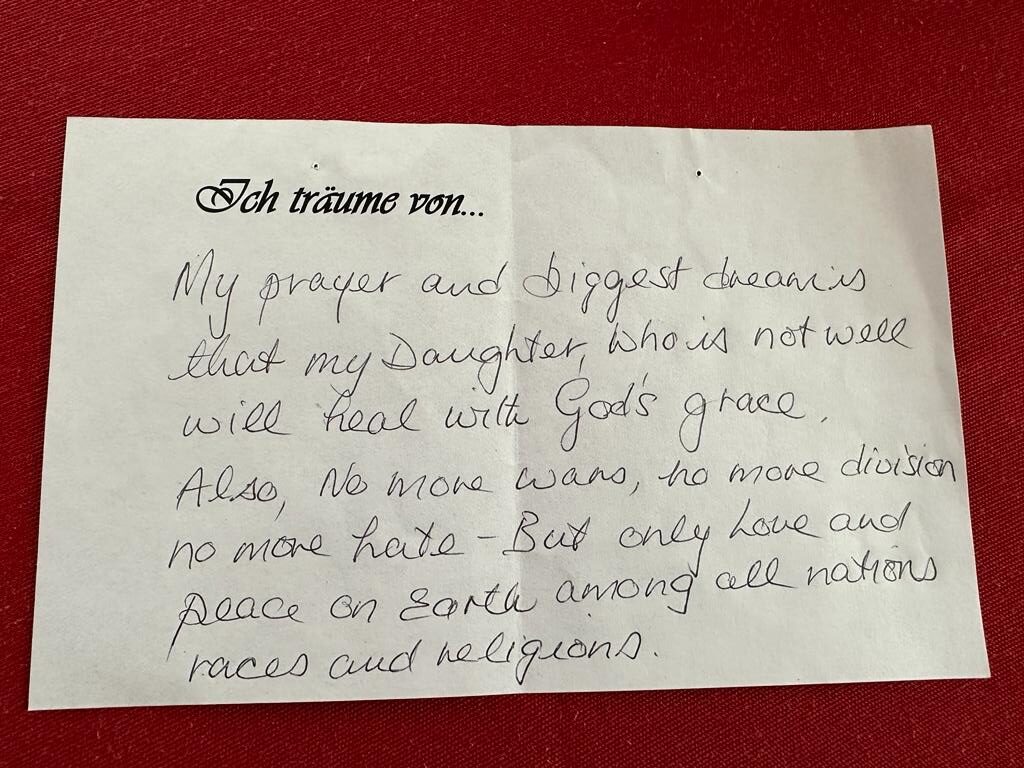 Ich träume von...
My prayer and biggest dream is
that my Daughter, who is not well
will heal with God's grace.
Also, No more wars, no more division
no more hate - But only Love and
peace on Earth among all nations
races and religions.